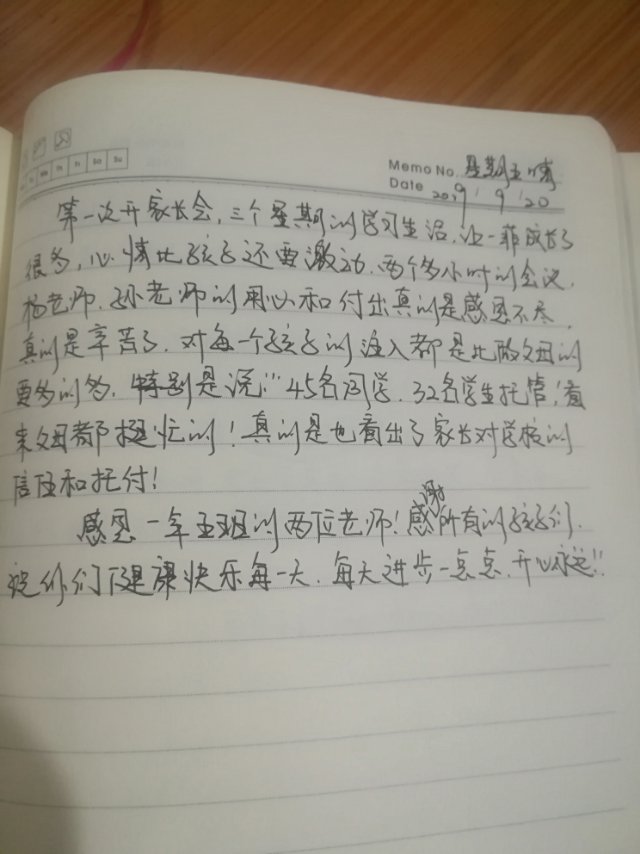 Mo Tu We Th Fr Sa Su
Memo No. 星期五 晴
Date 2019 / 9 / 20
第一次开家长会,三个星期的学习生活,让一菲成长了
很多,心情比孩子还要激动,两个多小时的会议,
杨老师、孙老师的用心和付出真的是感恩不尽,
真的是辛苦了,对每一个孩子的注入都是比做父母的
要多的多,特别是说!!!45名同学,32名学生托管!看
来父母都挺忙的!真的是也看出了家长对学校的
信任和托付!
感恩一年五班的两位老师!感谢所有的孩子们,
祝你们健康快乐每一天,每天进步一点点,开心永远!!